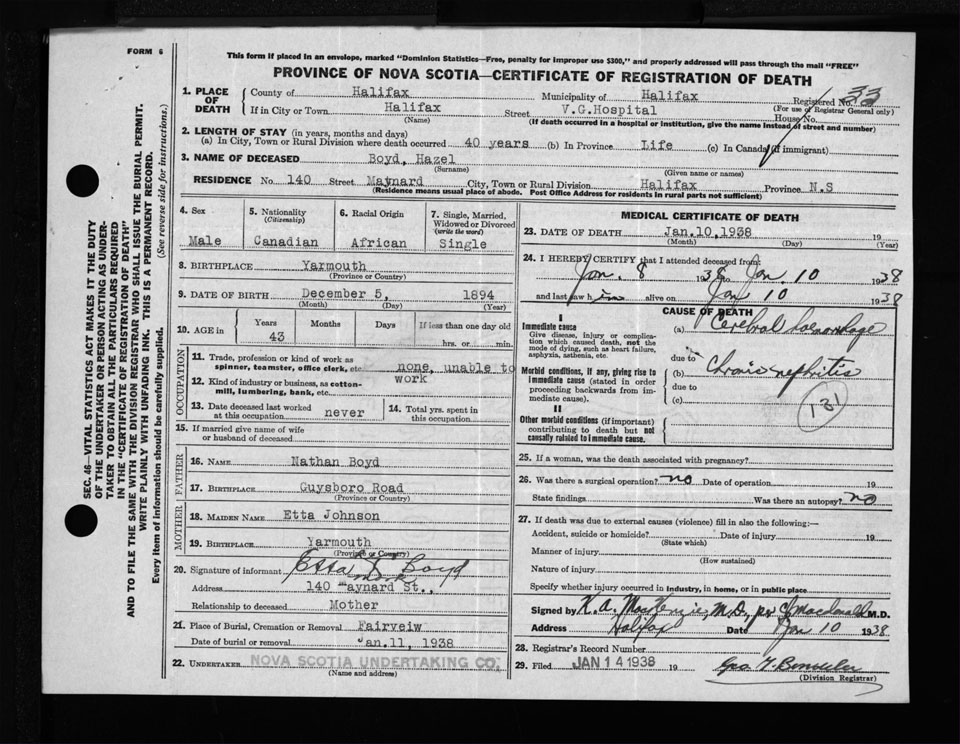 FORM 6
This form if placed in an envelope, marked "Dominion Statistics—Free, penalty for improper use $300," and properly addressed will pass through the mail "FREE"
PROVINCE OF NOVA SCOTIA—CERTIFICATE OF REGISTRATION OF DEATH
SEC. 46—VITAL STATISTICS ACT MAKES IT THE DUTY
OF THE UNDERTAKER OR PERSON ACTING AS UNDER-
TAKER TO OBTAIN ALL THE PARTICULARS REQUIRED
IN THE "CERTIFICATE OF REGISTRATION OF DEATH"
AND TO FILE THE SAME WITH THE DIVISION REGISTRAR WHO SHALL ISSUE THE BURIAL PERMIT.
WRITE PLAINLY WITH UNFADING INK. THIS IS A PERMANENT RECORD.
Every item of information should be carefully supplied. (See reverse side for instructions.)
1. PLACE OF DEATH County of Halifax Municipality of Halifax Registered No. 33
(For use of Registrar General only)
If in City or Town Halifax Street V.G.Hospital House No.
(Name) (If death occurred in a hospital or institution, give the name instead of street and number)
2. LENGTH OF STAY (in years, months and days)
(a) In City, Town or Rural Division where death occurred 40 years (b) In Province Life (c) In Canada (if immigrant)
3. NAME OF DECEASED Boyd, Hazel
(Surname) (Given name or names)
RESIDENCE No. 140 Street Maynard City, Town or Rural Division Halifax Province N.S
(Residence means usual place of abode. Post Office Address for residents in rural parts not sufficient)
4. Sex 5. Nationality (Citizenship) 6. Racial Origin 7. Single, Married, Widowed or Divorced (write the word)
Male Canadian African Single
8. BIRTHPLACE Yarmouth
(Province or Country)
9. DATE OF BIRTH December 5, 1894
(Month) (Day) (Year)
10. AGE in Years Months Days If less than one day old
43 hrs. or min.
OCCUPATION
11. Trade, profession or kind of work as
spinner, teamster, office clerk, etc. none, unable to
12. Kind of industry or business, as cotton- work
mill, lumbering, bank, etc.
13. Date deceased last worked at this occupation never 14. Total yrs. spent in this occupation
15. If married give name of wife
or husband of deceased
FATHER
16. NAME Nathan Boyd
17. BIRTHPLACE Guysboro Road
(Province or Country)
MOTHER
18. MAIDEN NAME Etta Johnson
19. BIRTHPLACE Yarmouth
(Province or Country)
20. Signature of informant Etta Boyd
Address 140 aynard St.,
Relationship to deceased Mother
21. Place of Burial, Cremation or Removal Fairveiw
Date of burial or removal Jan.11, 1938
22. UNDERTAKER NOVA SCOTIA UNDERTAKING CO.
(Name and address)
MEDICAL CERTIFICATE OF DEATH
23. DATE OF DEATH Jan.10,1938 19
(Month) (Day) (Year)
24. I HEREBY CERTIFY that I attended deceased from:
Jan. 8 1938 to Jan. 10 1938
and last saw him alive on Jan 10 1938
CAUSE OF DEATH
I
Immediate cause (a) Cerebral haemorrhage
Give disease, injury or complica-
tion which caused death, not the
mode of dying, such as heart failure,
asphyxia, asthenia, etc. due to
Morbid conditions, if any, giving rise to (b) Chronic nephritis
immediate cause (stated in order due to
proceeding backwards from im-
mediate cause). (c)
131
II
Other morbid conditions (if important)
contributing to death but not
causally related to immediate cause.
25. If a woman, was the death associated with pregnancy?
26. Was there a surgical operation? no Date of operation 19
State findings Was there an autopsy? no
27. If death was due to external causes (violence) fill in also the following:—
Accident, suicide or homicide? Date of injury 19
(State which)
Manner of injury
(How sustained)
Nature of injury
Specify whether injury occurred in industry, in home, or in public place
Signed by K.A. MacKenzie, M.D. per Macdonald M.D.
Address Halifax Date Jan 10 1938
28. Registrar's Record Number
29. Filed JAN 14 1938 19
(Division Registrar)